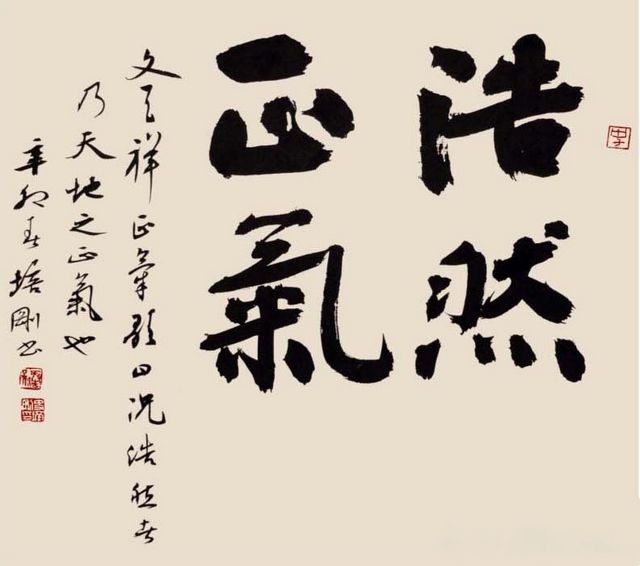 浩然
正氣
文天祥正氣歌曰况浩然者
乃天地之正氣也
辛卯春培剛书